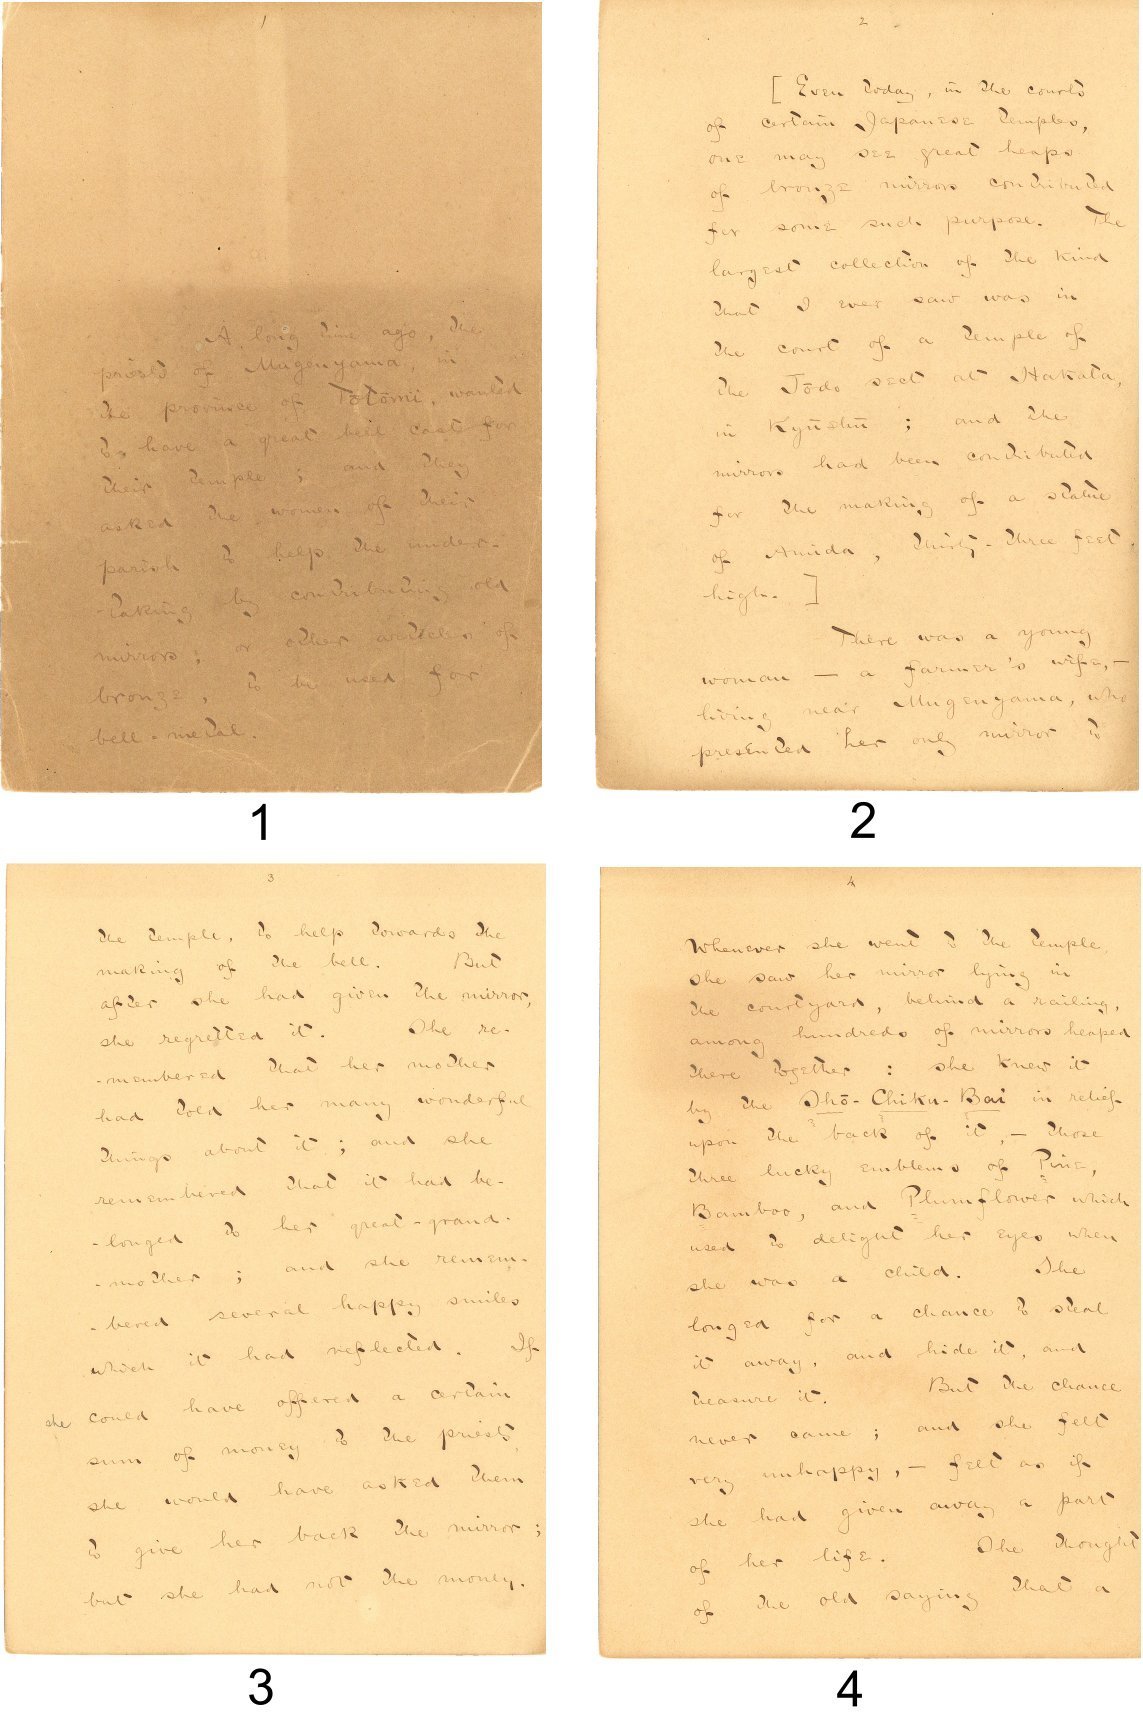 1
A long time ago, the
priests of Mugenyama, in
the province of Tōtōmi, wanted
to have a great bell cast for
their temple ; and they
asked the women of their
parish to help the under-
-taking by contributing old
mirrors ; or other articles of
bronze, to be used for
bell-metal.
1
2
[ Even today, in the courts
of certain Japanese temples,
one may see great heaps
of bronze mirrors contributed
for some such purpose. The
largest collection of the kind
that I ever saw was in
the court of a temple of
the Jōdo sect at Hakata,
in Kyūshū ; and the
mirrors had been contributed
for the making of a statue
of Amida, thirty-three feet
high. ]
There was a young
woman — a farmer's wife, —
living near Mugenyama, who
presented her only mirror to
2
3
the temple, to help towards the
making of the bell. But
after she had given the mirror,
she regretted it. She re-
-membered that her mother
had told her many wonderful
things about it ; and she
remembered that it had be-
-longed to her great-grand-
-mother ; and she remem-
-bered several happy smiles
which it had reflected. If
she could have offered a certain
sum of money to the priests,
she would have asked them
to give her back the mirror ;
but she had not the money.
3
4
Whenever she went to the temple
she saw her mirror lying in
the courtyard, behind a railing,
among hundreds of mirrors heaped
there together : she knew it
by the Shō-Chiku-Bai in relief
upon the back of it, — those
three lucky emblems of Pine,
Bamboo, and Plumflower which
used to delight her eyes when
she was a child. She
longed for a chance to steal
it away, and hide it, and
treasure it. But the chance
never came ; and she felt
very unhappy, — felt as if
she had given away a part
of her life. She thought
of the old saying that a
4